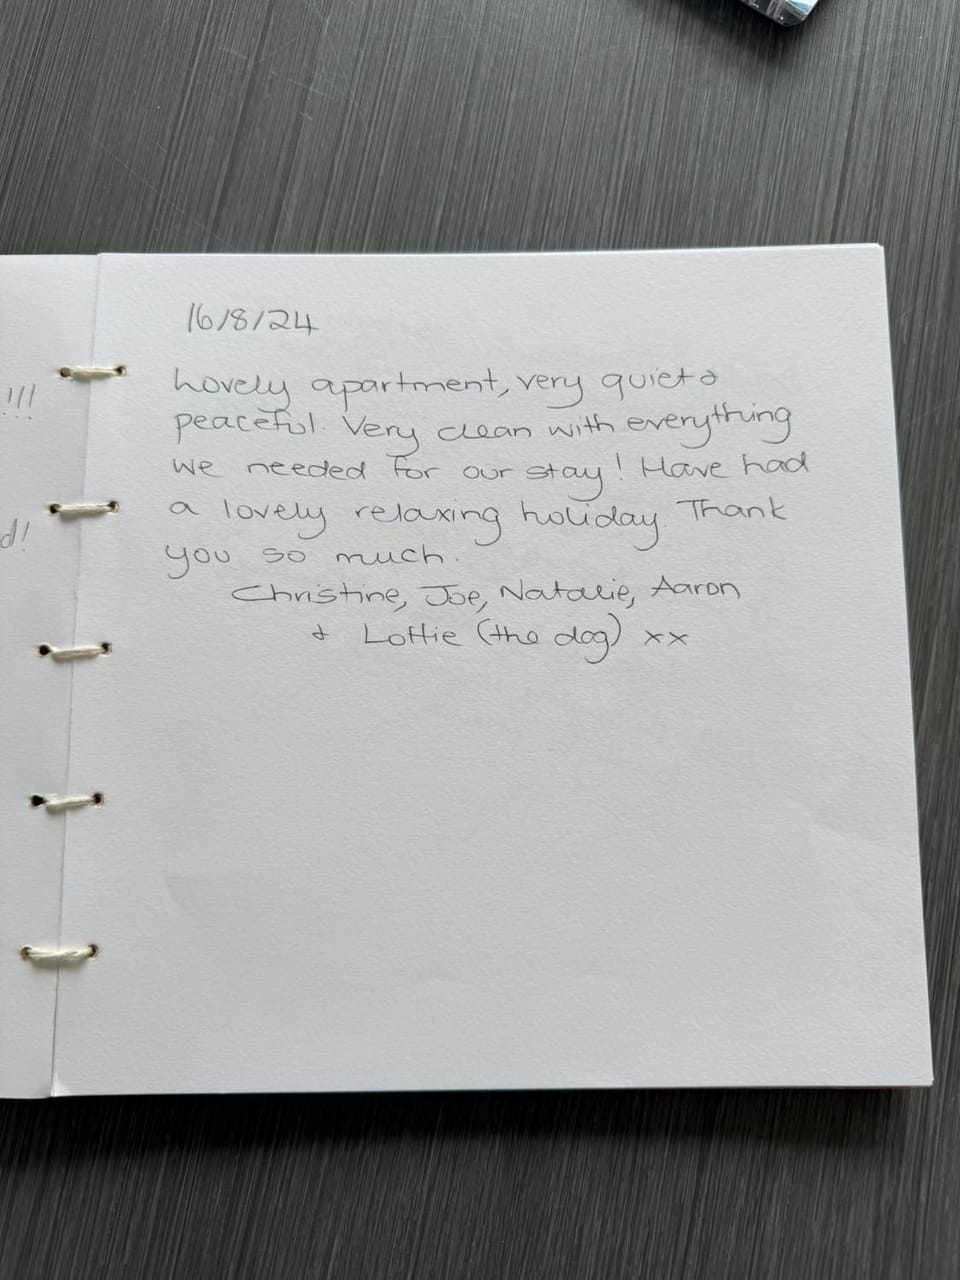 !!!
d!
16/8/24
Lovely apartment, very quiet &
peaceful. Very clean with everything
we needed for our stay! Have had
a lovely relaxing holiday. Thank
you so much.
Christine, Joe, Natalie, Aaron
& Lottie (the dog) xx